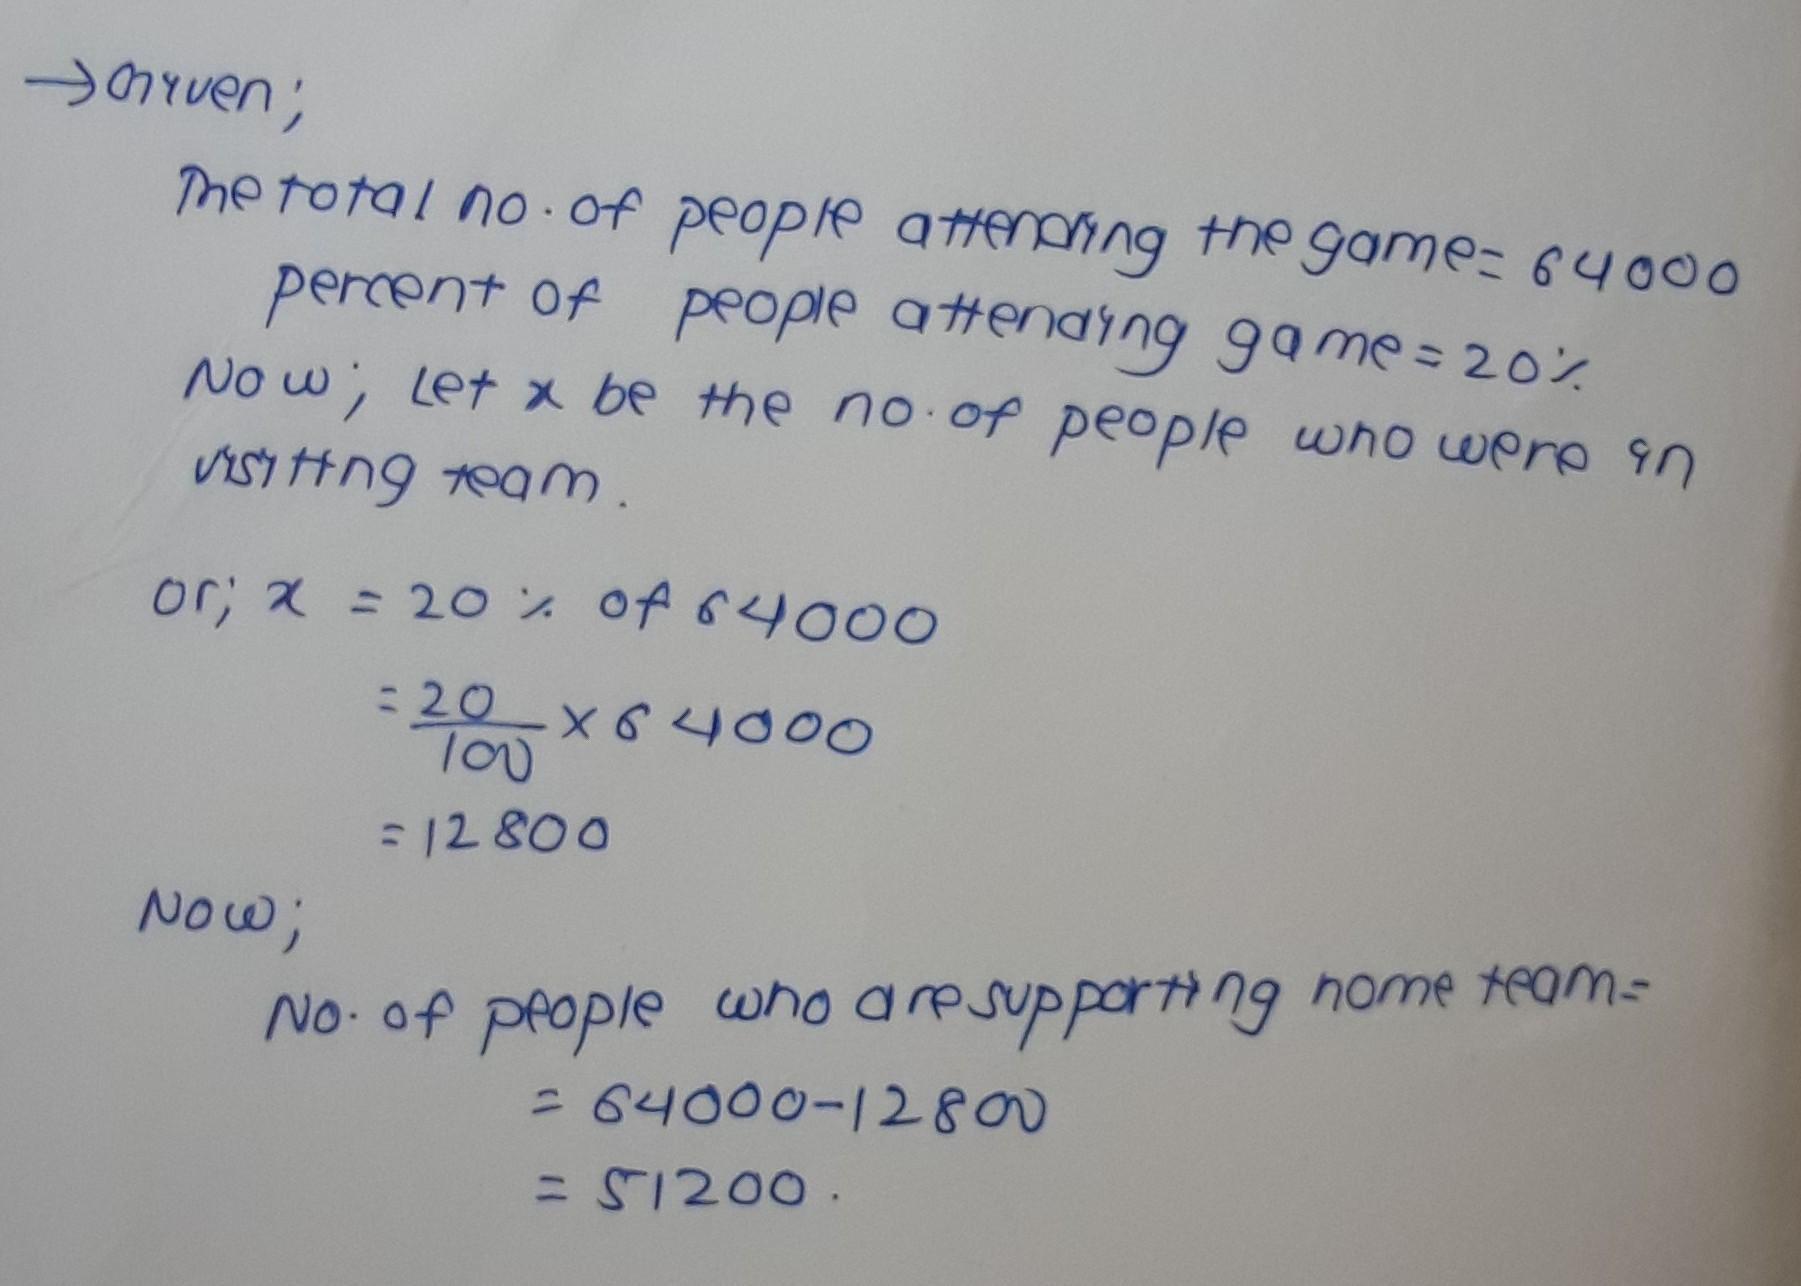 → Given;
The total no. of people attending the game= 64000
percent of people attending game = 20%
Now; Let x be the no. of people who were in
visiting team.
or; x = 20 % of 64000
= 20/100 × 64000
= 12800
Now;
No. of people who are supporting home team=
= 64000-12800
= 51200.